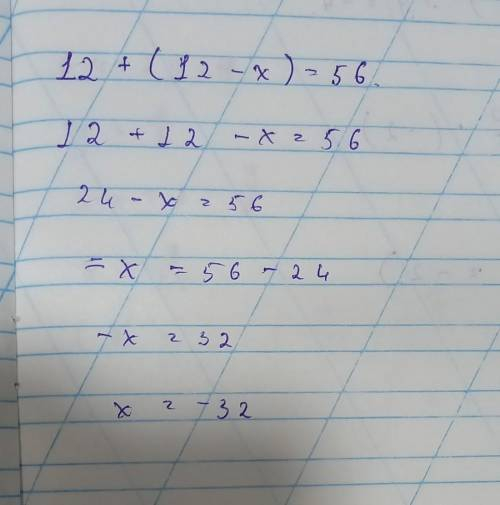 12 + ( 12 - x ) = 56.
12 + 12 - x = 56
24 - x = 56
= x = 56 - 24
- x = 32
x = -32